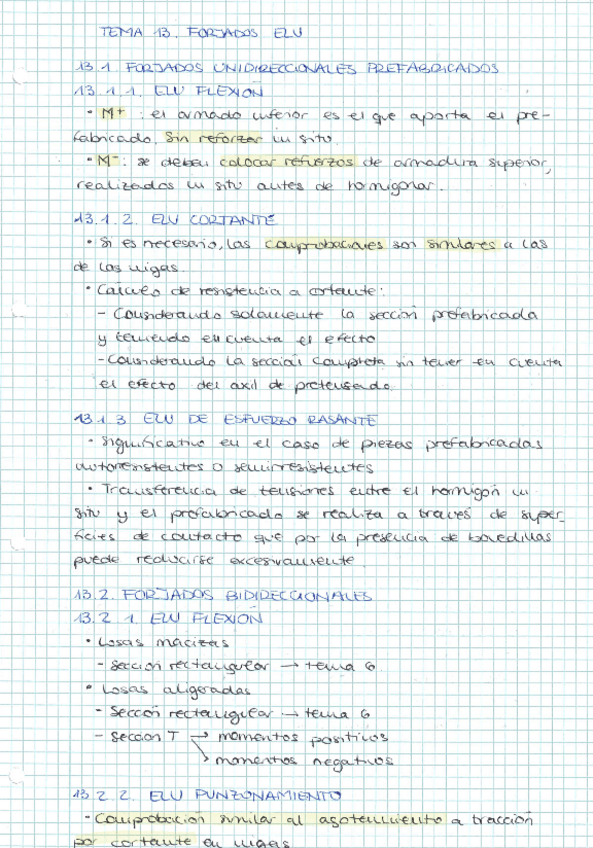 TEMA 13. FORJADOS ELU
13.1. FORJADOS UNIDIRECCIONALES PREFABRICADOS
13.1.1. ELU FLEXIÓN
• M+ : el armado inferior es el que aporta el pre-
fabricado. Sin reforzar in situ.
• M-: se deben colocar refuerzos de armadura superior,
realizados in situ antes de hormigonar.
13.1.2. ELU CORTANTE
• Si es necesario, las comprobaciones son similares a las
de las vigas.
• Cálculo de resistencia a cortante:
- Considerando solamente la sección prefabricada
y teniendo en cuenta el efecto
- Considerando la sección completa sin tener en cuenta
el efecto del axil de pretensado.
13.1.3 ELU DE ESFUERZO RASANTE
• Significativo en el caso de piezas prefabricadas
autorresistentes o semirresistentes
• Transferencia de tensiones entre el hormigón in
situ y el prefabricado se realiza a través de super-
ficies de contacto que por la presencia de bovedillas
puede reducirse excesivamente.
13.2. FORJADOS BIDIRECCIONALES
13.2.1. ELU FLEXIÓN
• Losas macizas
- Sección rectangular → tema 6
• Losas aligeradas
- Sección rectangular → tema 6
- Sección T → momentos positivos
↘ momentos negativos
13.2.2. ELU PUNZONAMIENTO
- Comprobación similar al agotamiento a tracción
por cortante en vigas